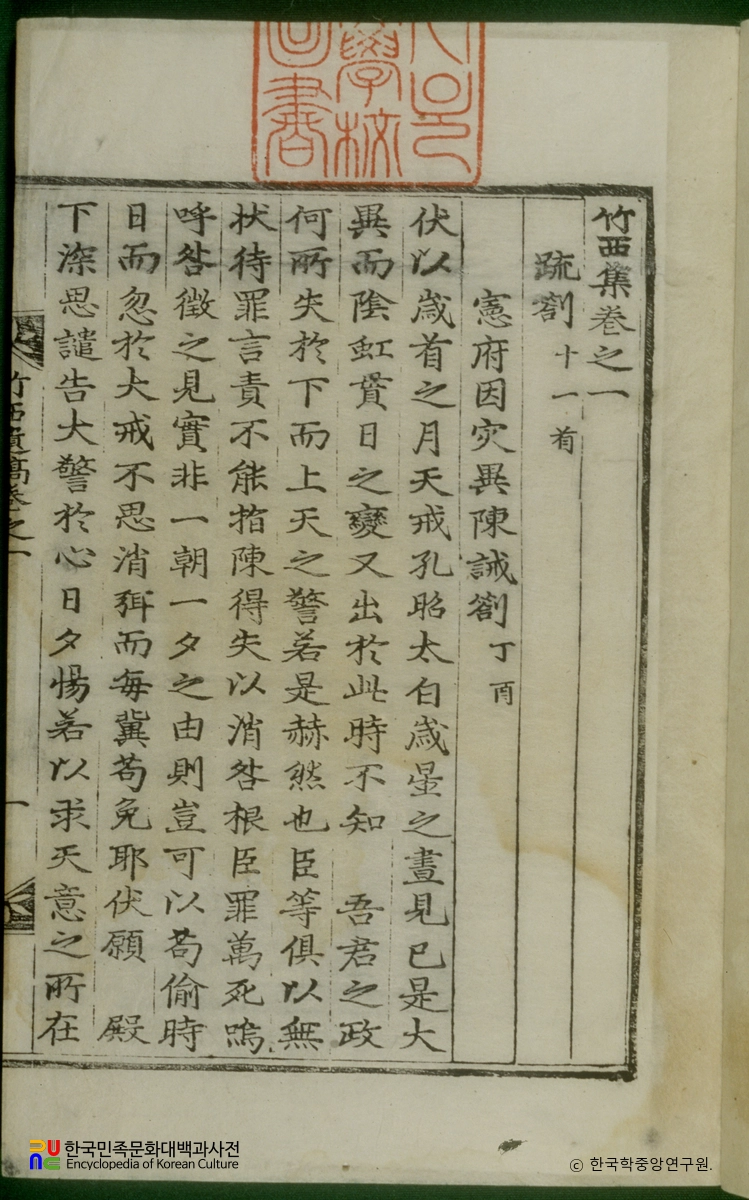 竹西集卷之一
疏劄 十一首
憲府因灾異陳誡劄 丁酉
伏以歲首之月天戒孔昭太白歲星之晝見已是大
異而陰虹貫日之變又出於此時不知 吾君之政
何所失於下而上天之警若是赫然也臣等俱以無
狀待罪言責不能指陳得失以消咎根臣罪萬死嗚
呼咎徵之見實非一朝一夕之由則豈可以苟偷時
日而忽於大戒不思消弭而每冀苟免耶伏願 殿
下深思譴告大警於心日夕惕若以求天意之所在
竹西遺稿卷之一
一
한국민족문화대백과사전
Encyclopedia of Korean Culture
ⓒ 한국학중앙연구원.